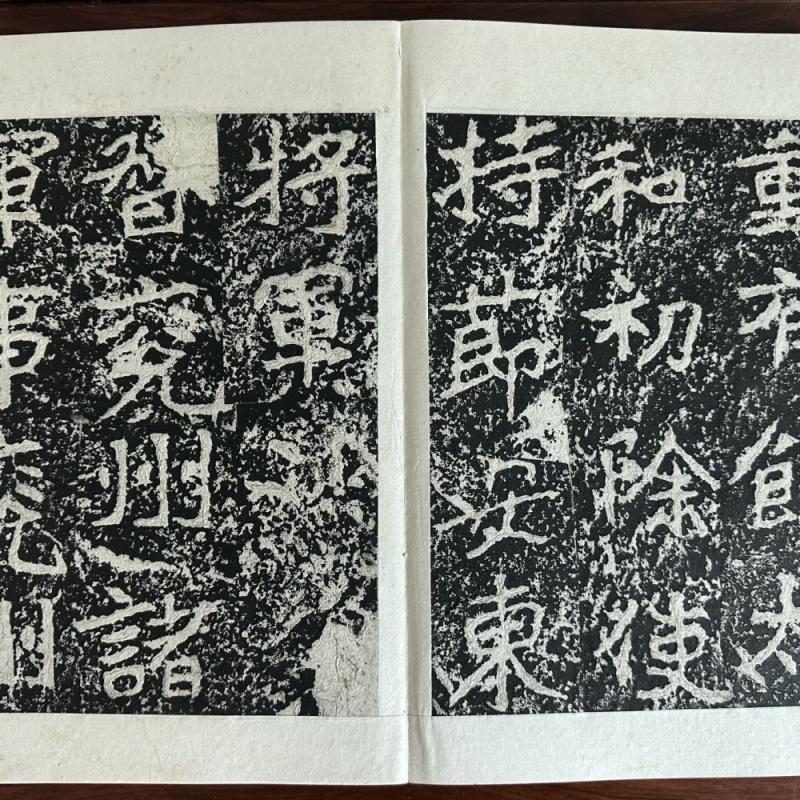 重有太
和初除使
持節安東
將軍
督兗州諸
軍事兗州